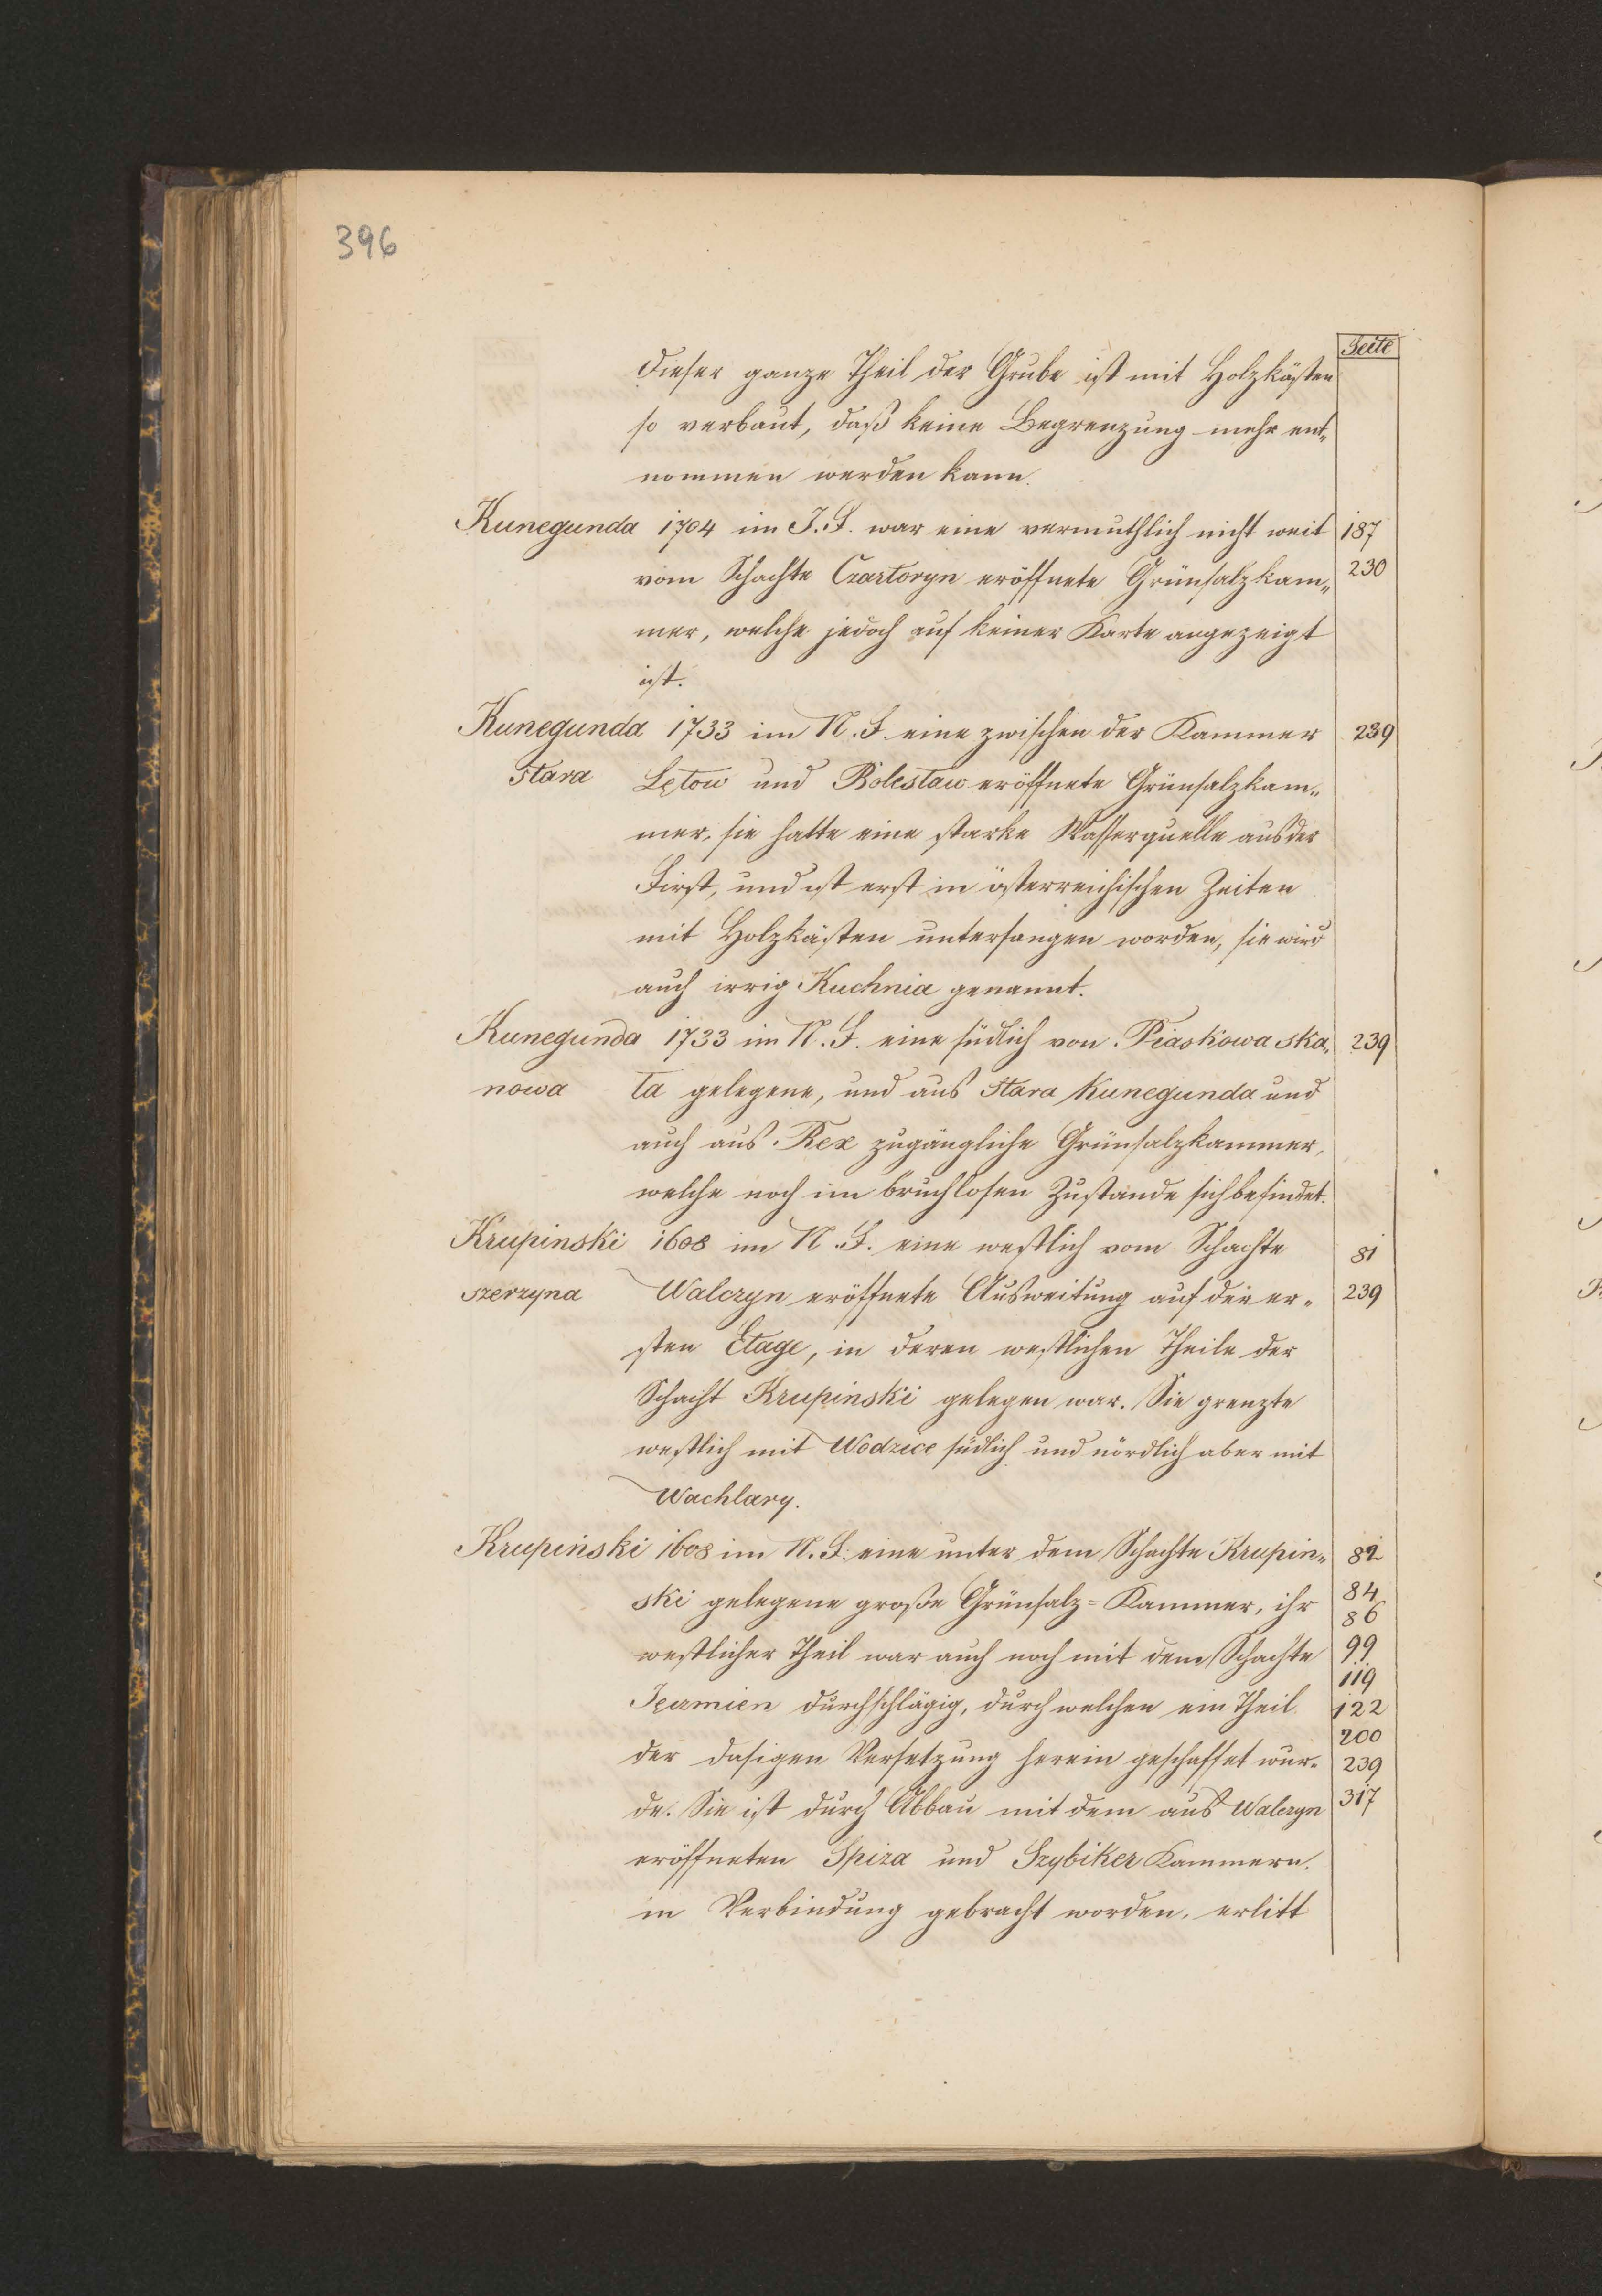 396
Seite
Dieser ganze Theil der Grube ist mit Holzkästen
so verbaut, daß keine Begrenzung mehr ent„
nommen werden kann.
Kunegunda 1704 im J. F. war eine vermuthlich nicht weit 187
vom Schachte Czartoryn eröffnete Grünsalzkam„ 230
mer, welche jedoch auf keiner Karte angezeigt
ist.
Kunegunda 1733 im N. F. eine zwischen der Kammer 239
Stara Lętow und Bolesław eröffnete Grünsalzkam„
mer, sie hatte eine starke Wasserquelle aus der
First, und ist erst in österreichischen Zeiten
mit Holzkästen unterfangen worden, sie wird
auch irrig Kuchnia genannt.
Kunegunda 1733 im N. F. eine südlich von Piaskowa ska„ 239
nowa ła gelegene, und aus Stara Kunegunda und
auch aus Rex zugängliche Grünsalzkammer,
welche noch im bruchlosen Zustande sich befindet.
Krupinski 1608 im N. F. eine westlich vom Schachte 81
szerzyna Walczyn eröffnete Ausweitung auf der er„ 239
sten Etage, in deren westlichen Theile der
Schacht Krupinski gelegen war. Sie grenzte
westlich mit Wodzice südlich und nördlich aber mit
Wachlary.
Krupiński 1608 im N. F. eine unter dem Schachte Krupin„ 82
ski gelegene große Grünsalz-Kammer, ihr 84
86
westlicher Theil war auch noch mit dem Schachte 99
119
durchschlägig, durch welchen ein Theil 122
200
der dasigen Versetzung herein geschaffet wur„ 239
de. Sie ist durch Abbau mit dem aus Walczyn 317
eröffneten Spiza und Szybiker Kammern,
in Verbindung gebracht worden, erlitt